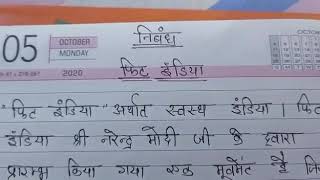 निबंध
05 OCTOBER
MONDAY
2020
OCTOBER
फिट इंडिया
"फिट इंडिया" अर्थात स्वस्थ इंडिया । फिट
इंडिया श्री नरेन्द्र मोदी जी के द्वारा
प्रारम्भ किया गया एक मूवमेंट है